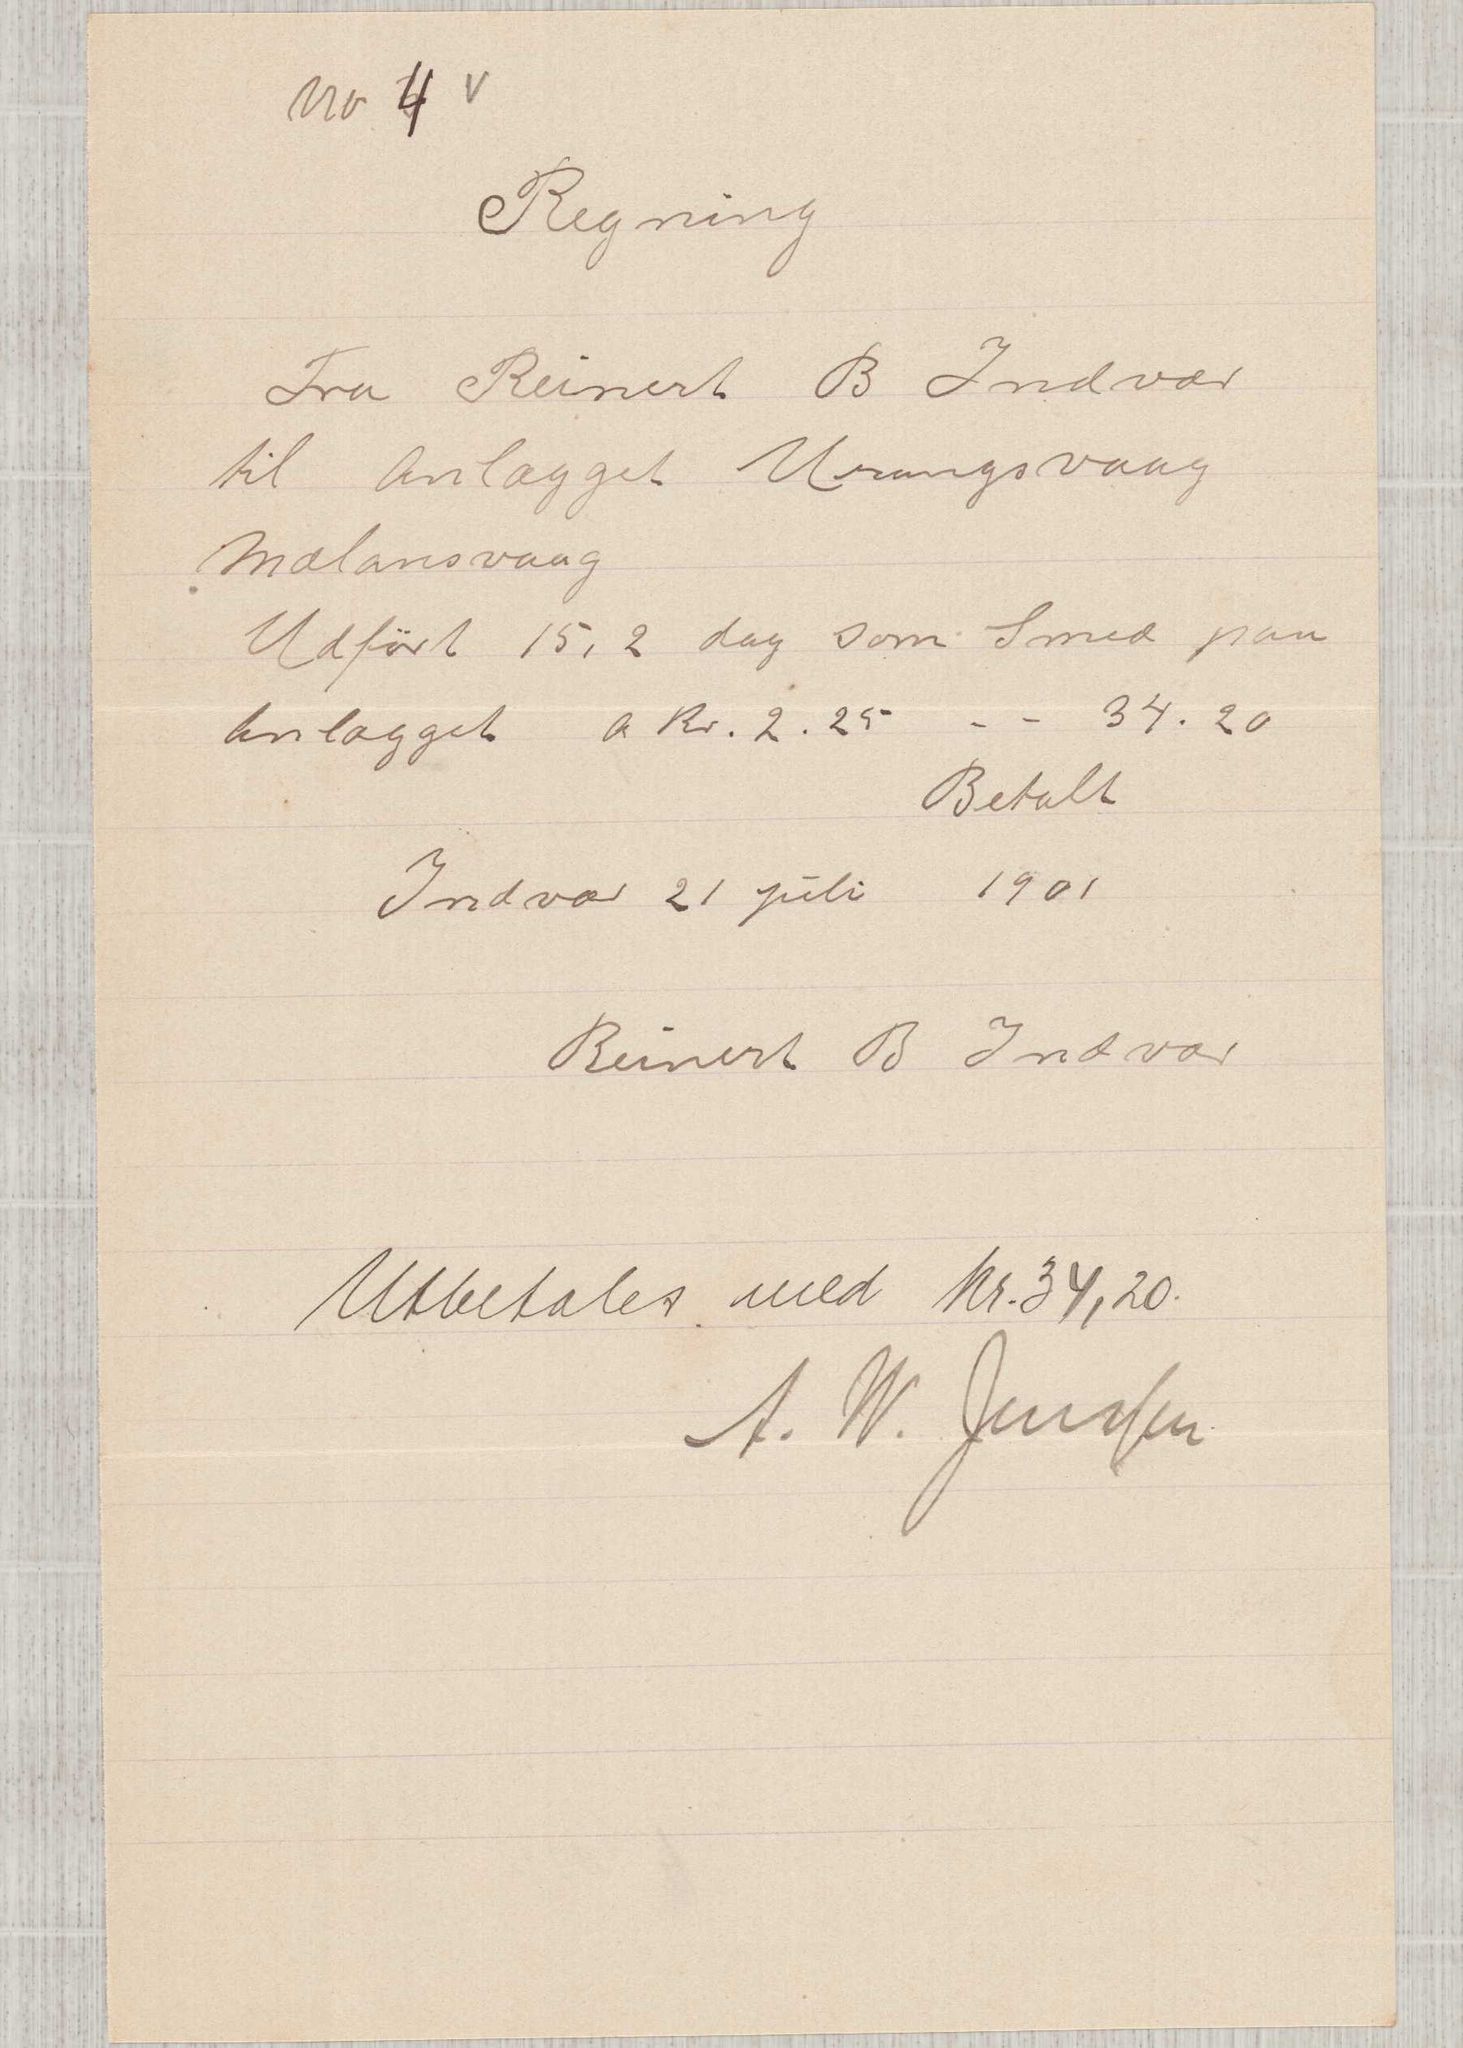 No 4 v
Regning
Fra Reinert B Indvær
til Anlægget Urangsvaag
Mælansvaag
Udført 15,2 dag som Smed paa
Anlægget a Kr. 2.25 - - 34.20
Betalt
Indvær 21 juli 1901
Reinert B Indvær
Utbetales med Kr. 34,20.
A. W. Jenssen